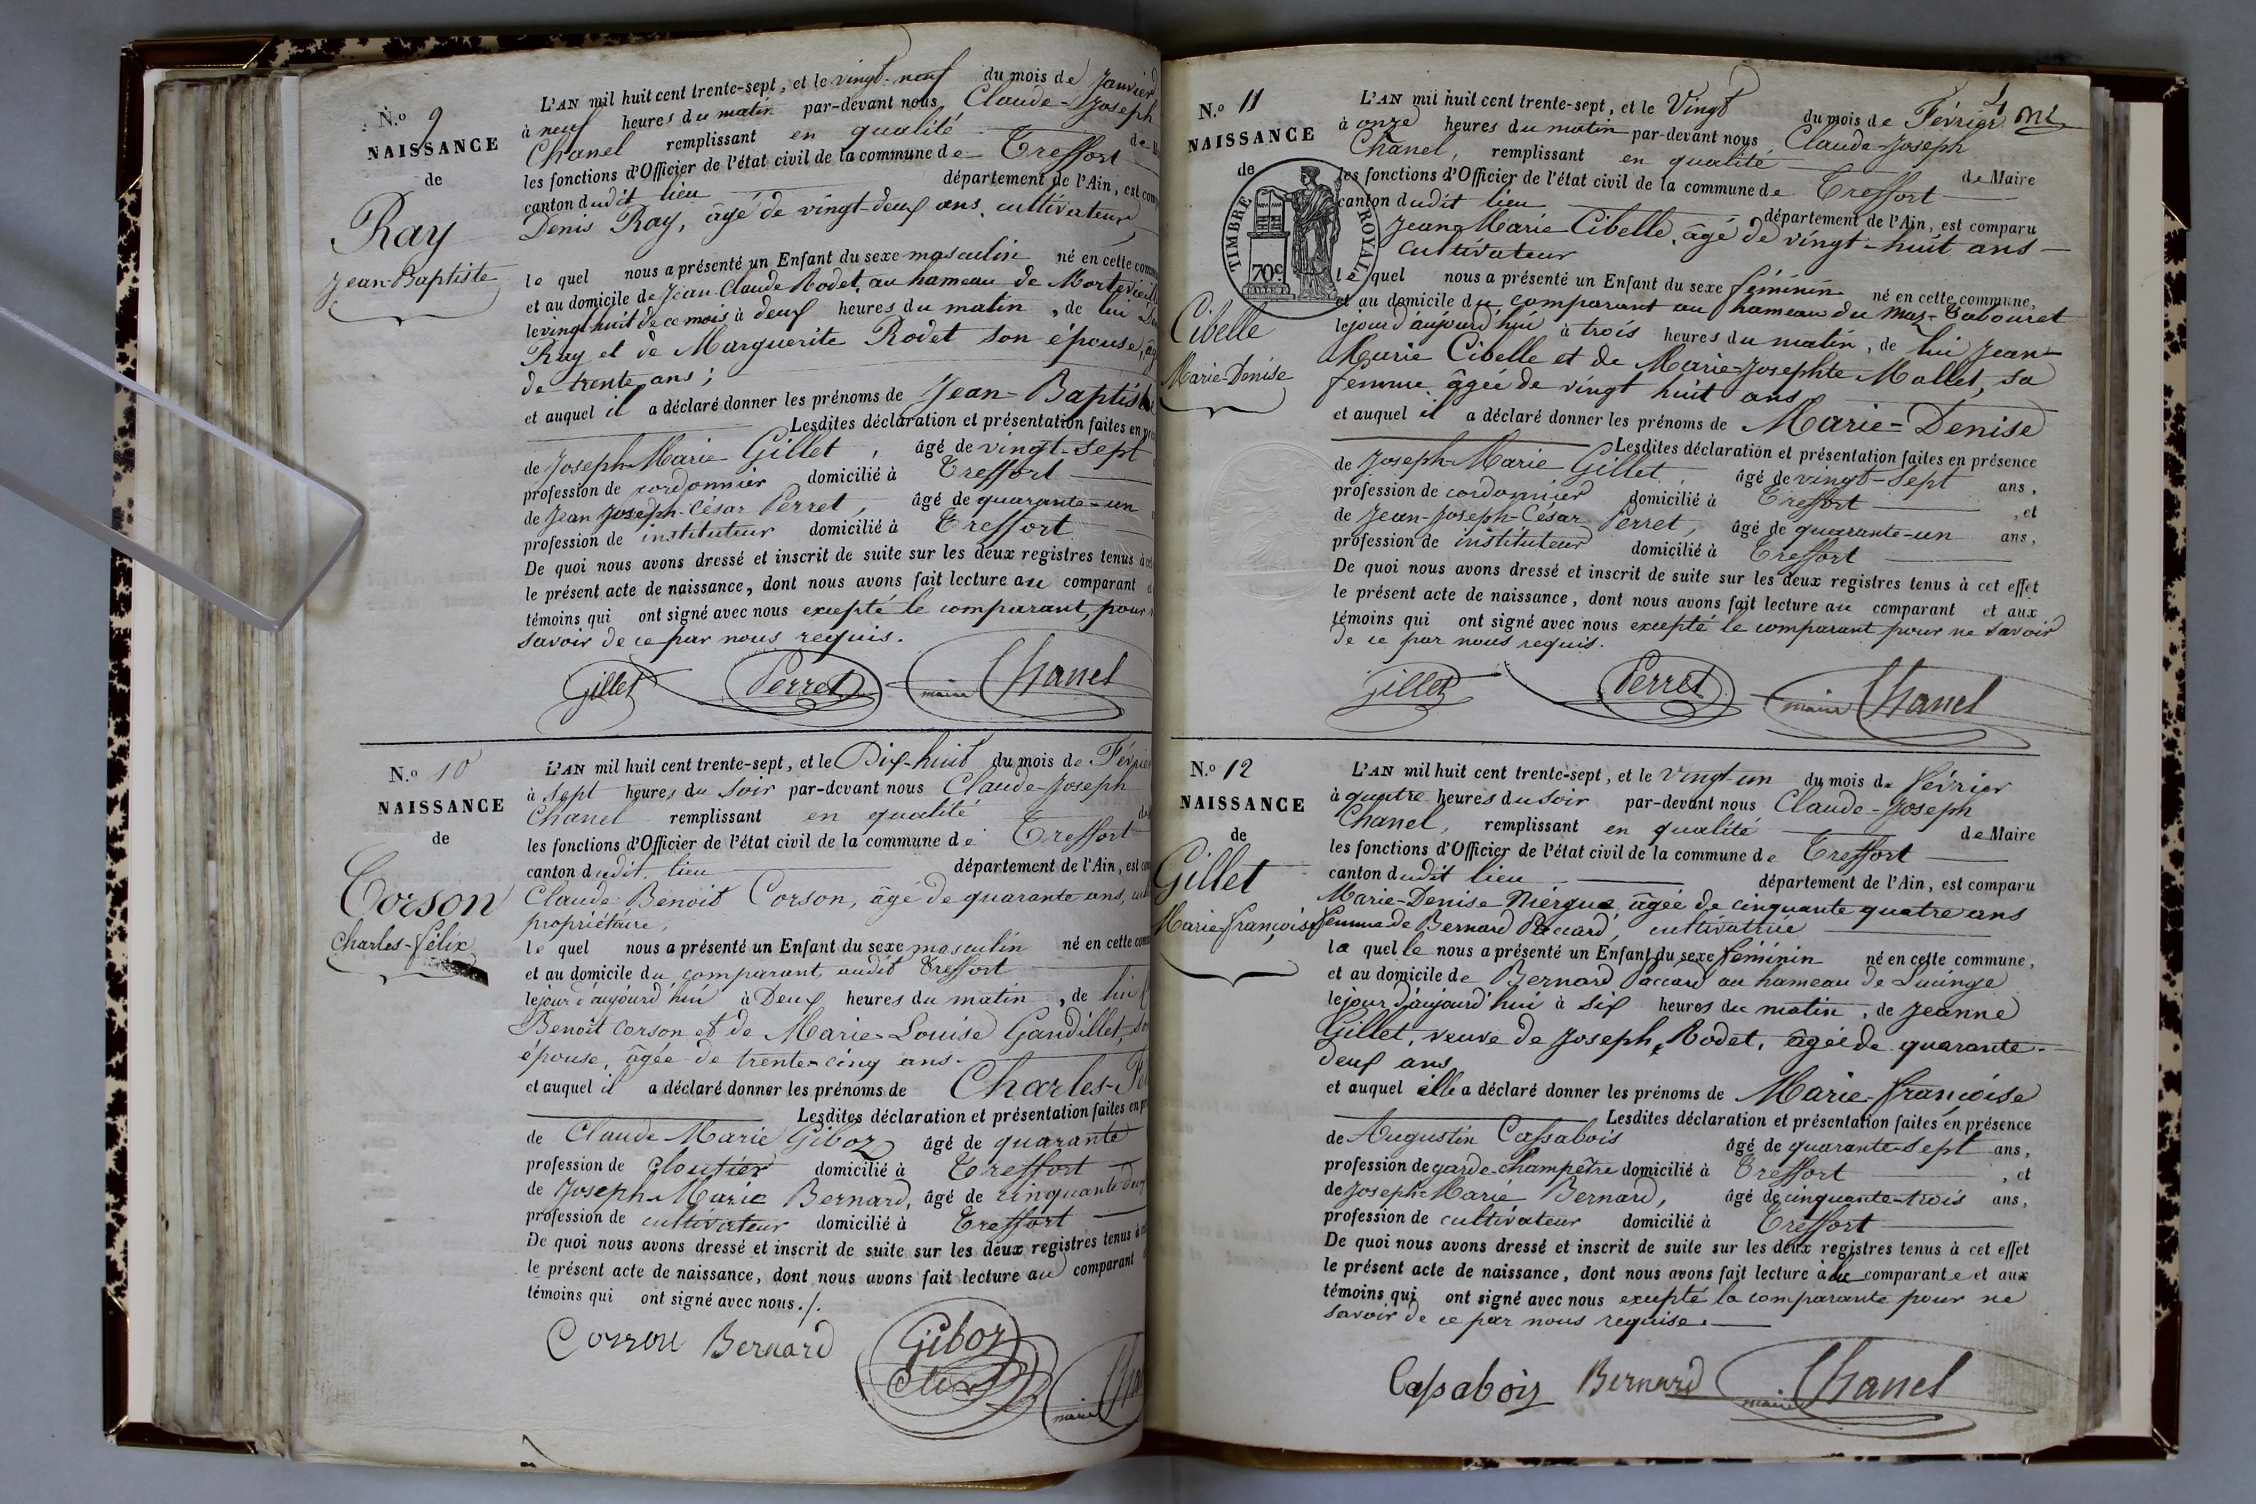 N.o 9
NAISSANCE
de
Ray
Jean-Baptiste
L'AN mil huit cent trente-sept, et le vingt-neuf du mois de Janvier
à neuf heures du matin par-devant nous Claude-Joseph
Chanel remplissant en qualité de
les fonctions d'Officier de l'état civil de la commune de Treffort
canton dudit lieu département de l'Ain, est
Denis Ray, âgé de vingt-deux ans, cultivateur
le quel nous a présenté un Enfant du sexe masculin né en cette
et au domicile de Jean-Claude Rodet, au hameau de
le vingt huit de ce mois à deux heures du matin, de lui
Ray et de Marguerite Rodet son épouse,
de trente ans;
et auquel il a déclaré donner les prénoms de Jean-Baptiste
Lesdites déclaration et présentation faites en
de Joseph-Marie Gillet, âgé de vingt-sept
profession de cordonnier domicilié à Treffort
de Jean Joseph-César Perret, âgé de quarante-un
profession de instituteur domicilié à Treffort
De quoi nous avons dressé et inscrit de suite sur les deux registres tenus à
le présent acte de naissance, dont nous avons fait lecture au comparant
témoins qui ont signé avec nous excepté le comparant, pour
savoir de ce par nous requis.
Gillet Perret maire Chanel
N.o 10
NAISSANCE
de
Corson
Charles-Félix
L'AN mil huit cent trente-sept, et le Dix-huit du mois de Février
à sept heures du soir par-devant nous Claude-Joseph
Chanel remplissant en qualité
les fonctions d'Officier de l'état civil de la commune de Treffort
canton dudit lieu département de l'Ain, est
Claude Benoit Corson, âgé de quarante ans,
propriétaire,
le quel nous a présenté un Enfant du sexe masculin né en cette
et au domicile du comparant audit Treffort
le jour d'aujourd'hui à Deux heures du matin, de lui
Benoît Corson et de Marie-Louise Gandillet, son
épouse, âgée de trente-cinq ans
et auquel il a déclaré donner les prénoms de Charles-
Lesdites déclaration et présentation faites en
de Claude Marie Giboz âgé de quarante
profession de cloutier domicilié à Treffort
de Joseph-Marie Bernard, âgé de cinquante deux
profession de cultivateur domicilié à Treffort
De quoi nous avons dressé et inscrit de suite sur les deux registres tenus à
le présent acte de naissance, dont nous avons fait lecture au comparant
témoins qui ont signé avec nous./.
Corson Bernard Giboz maire
N.o 11
NAISSANCE
de
TIMBRE ROYAL
70c
Cibelle
Marie-Denise
L'AN mil huit cent trente-sept, et le Vingt du mois de Février
à onze heures du matin par-devant nous Claude-Joseph
Chanel, remplissant en qualité de Maire
les fonctions d'Officier de l'état civil de la commune de Treffort
canton dudit lieu département de l'Ain, est comparu
Jean-Marie Cibelle, âgé de vingt-huit ans
cultivateur
le quel nous a présenté un Enfant du sexe féminin né en cette commune,
et au domicile du comparant au hameau du Mas-Tabouret
le jour d'aujourd'hui à trois heures du matin, de lui Jean-
Marie Cibelle et de Marie-Josephte Mallet, sa
femme âgée de vingt huit ans
et auquel il a déclaré donner les prénoms de Marie-Denise
Lesdites déclaration et présentation faites en présence
de Joseph-Marie Gillet, âgé de vingt-sept ans,
profession de cordonnier domicilié à Treffort, et
de Jean-Joseph-César Perret, âgé de quarante-un ans,
profession de instituteur domicilié à Treffort
De quoi nous avons dressé et inscrit de suite sur les deux registres tenus à cet effet
le présent acte de naissance, dont nous avons fait lecture au comparant et aux
témoins qui ont signé avec nous excepté le comparant pour ne savoir
de ce par nous requis.
Gillet Perret maire Chanel
N.o 12
NAISSANCE
de
Gillet
Marie-françoise
L'AN mil huit cent trente-sept, et le vingt-un du mois de février
à quatre heures du soir par-devant nous Claude-Joseph
Chanel, remplissant en qualité de Maire
les fonctions d'Officier de l'état civil de la commune de Treffort
canton dudit lieu département de l'Ain, est comparu
Marie-Denise Niérgue âgée de cinquante quatre ans
femme de Bernard Paccard, cultivatrice
la quelle nous a présenté un Enfant du sexe féminin né en cette commune,
et au domicile de Bernard Paccard au hameau de Lucinge
le jour d'aujourd'hui à six heures du matin, de Jeanne
Gillet, veuve de Joseph Rodet, âgée de quarante-
deux ans
et auquel elle a déclaré donner les prénoms de Marie-françoise
Lesdites déclaration et présentation faites en présence
de Augustin Cassabois âgé de quarante-sept ans,
profession de garde-champêtre domicilié à Treffort, et
de Joseph-Marie Bernard, âgé de cinquante-trois ans,
profession de cultivateur domicilié à Treffort
De quoi nous avons dressé et inscrit de suite sur les deux registres tenus à cet effet
le présent acte de naissance, dont nous avons fait lecture à la comparante et aux
témoins qui ont signé avec nous excepté la comparante pour ne
savoir de ce par nous requise.
Cassabois Bernard maire Chanel